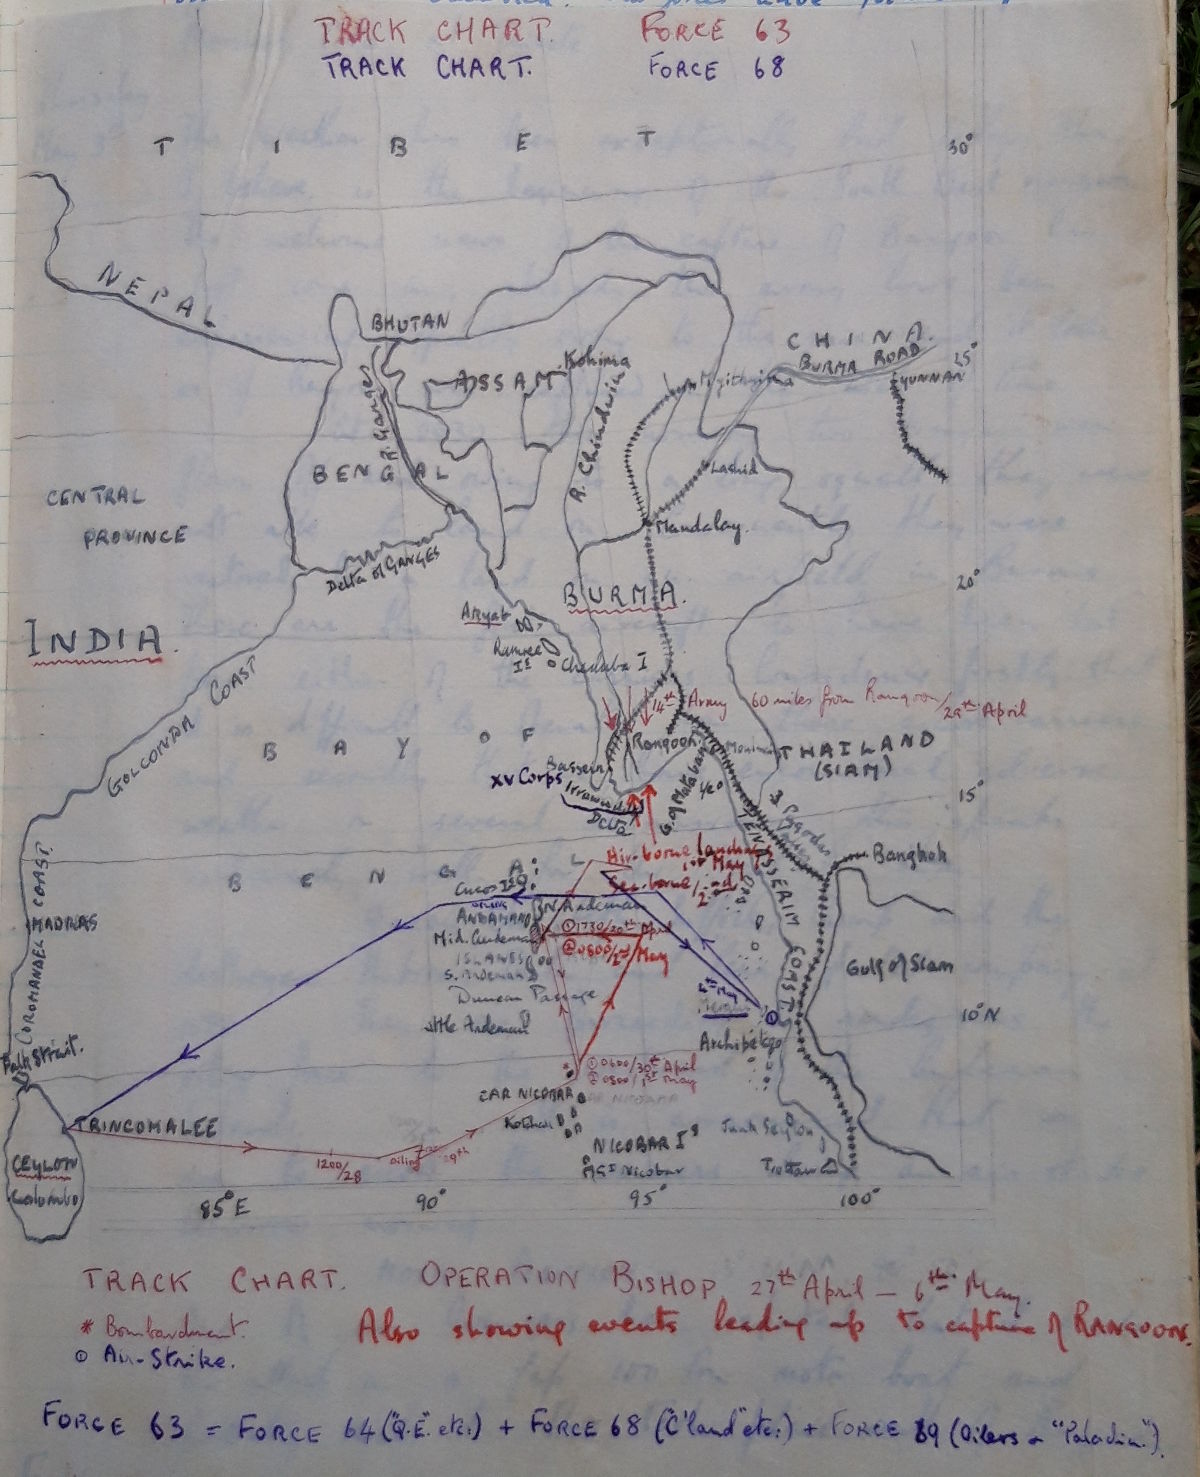 TRACK CHART. FORCE 63
TRACK CHART. FORCE 68
TIBET
30°
NEPAL
BHUTAN
CHINA.
BURMA ROAD
25°
YUNNAN
ASSAM
Kohima
R. Chindwin
R. Ganges
BENGAL
Lashio
CENTRAL
PROVINCE
Mandalay.
Delta of GANGES
20°
BURMA.
Akyab
INDIA.
Ramree
Is
Cheduba I
GOLCONDA COAST
14th Army 60 miles from Rangoon/29th April
BAY OF
Rangoon
THAILAND
(SIAM)
Bassein
XV Corps
Irrawaddy
Delta
G. of Mataban
15°
3 Pagodas
Air-borne landings
1st May
Sea-borne/2nd
Bangkok
BENGAL
Cocos Is
TENASSERIM COAST
N. Andeman
ANDAMAN
① 1730/30th April
MADRAS
Mid. Andeman
② 0800/2nd May
ISLANDS
S. Andeman
Gulf of Siam
COROMANDEL COAST
Duncan Passage
Little Andeman
10°N
Archipelego
Palk Strait.
① 0600/30th April
② 0500/1st May
CAR NICOBAR
TRINCOMALEE
NICOBAR Is
Junk Seylon
1200/28
Oiling
29th
Gt Nicobar
CEYLON
Colombo
85°E
90°
95°
100°
TRACK CHART. OPERATION BISHOP 27th April — 6th May.
* Bombardment.
Also showing events leading up to capture of RANGOON.
⊙ Air-Strike.
FORCE 63 = FORCE 64 ("Q.E." etc.) + FORCE 68 ("C'land" etc.) + FORCE 89 (Oilers + "Paladin.").